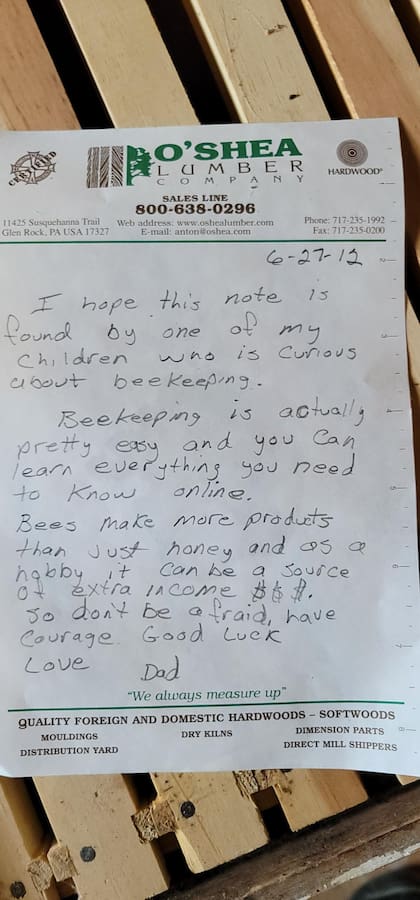 O'SHEA
LUMBER
COMPANY
HARDWOOD
SALES LINE
800-638-0296
11425 Susquehanna Trail
Glen Rock, PA USA 17327
Web address: www.oshealumber.com
E-mail: anton@oshea.com
Phone: 717-235-1992
Fax: 717-235-0200
6-27-12
I hope this note is
found by one of my
children who is curious
about beekeeping.
Beekeeping is actually
pretty easy and you can
learn everything you need
to know online.
Bees make more products
than just honey and as a
hobby it can be a source
of extra income $$$.
So don't be afraid, have
courage. Good Luck
Love
Dad
"We always measure up"
QUALITY FOREIGN AND DOMESTIC HARDWOODS – SOFTWOODS
MOULDINGS
DISTRIBUTION YARD
DRY KILNS
DIMENSION PARTS
DIRECT MILL SHIPPERS